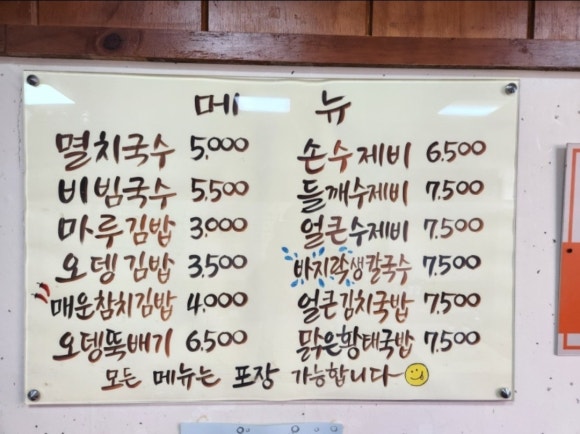 메 뉴
멸치국수 5,000
비빔국수 5,500
마루김밥 3,000
오뎅김밥 3,500
매운참치김밥 4,000
오뎅뚝배기 6,500
손수제비 6,500
들깨수제비 7,500
얼큰수제비 7,500
바지락생칼국수 7,500
얼큰김치국밥 7,500
맑은황태국밥 7,500
모든 메뉴는 포장 가능합니다~